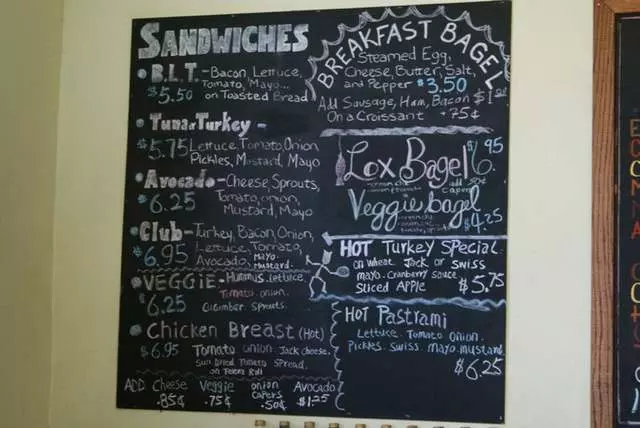 SANDWICHES
B.L.T. - Bacon, Lettuce,
Tomato, Mayo...
$5.50 on Toasted Bread
Tuna or Turkey -
$5.75 Lettuce, Tomato, Onion
Pickles, Mustard, Mayo
Avocado - Cheese, Sprouts,
$6.25 Tomato, onion,
Mustard, Mayo
Club - Turkey, Bacon, Onion,
$6.95 Lettuce, Tomato,
Avocado, Mayo
Mustard.
VEGGIE - Hummus. lettuce.
$6.25 Tomato. onion.
Cucumber. Sprouts.
Chicken Breast (Hot)
$6.95 Tomato onion. Jack cheese.
Sun Dried Tomato Spread.
on Roll
ADD Cheese Veggie onion Avocado
capers
.85¢ .75¢ .50¢ $1.25
BREAKFAST BAGEL
Steamed Egg,
Cheese, Butter, Salt,
and Pepper $3.50
Add Sausage, Ham, Bacon $1.00
On a Croissant +75¢
Lox Bagel $6.95
cream che add 50¢
capers
Veggie bagel
$4.25
HOT Turkey Special
on wheat. Jack or swiss
mayo. Cranberry sauce
Sliced Apple $5.75
HOT Pastrami
Lettuce. Tomato onion.
Pickles. Swiss. mayo. mustard
$6.25